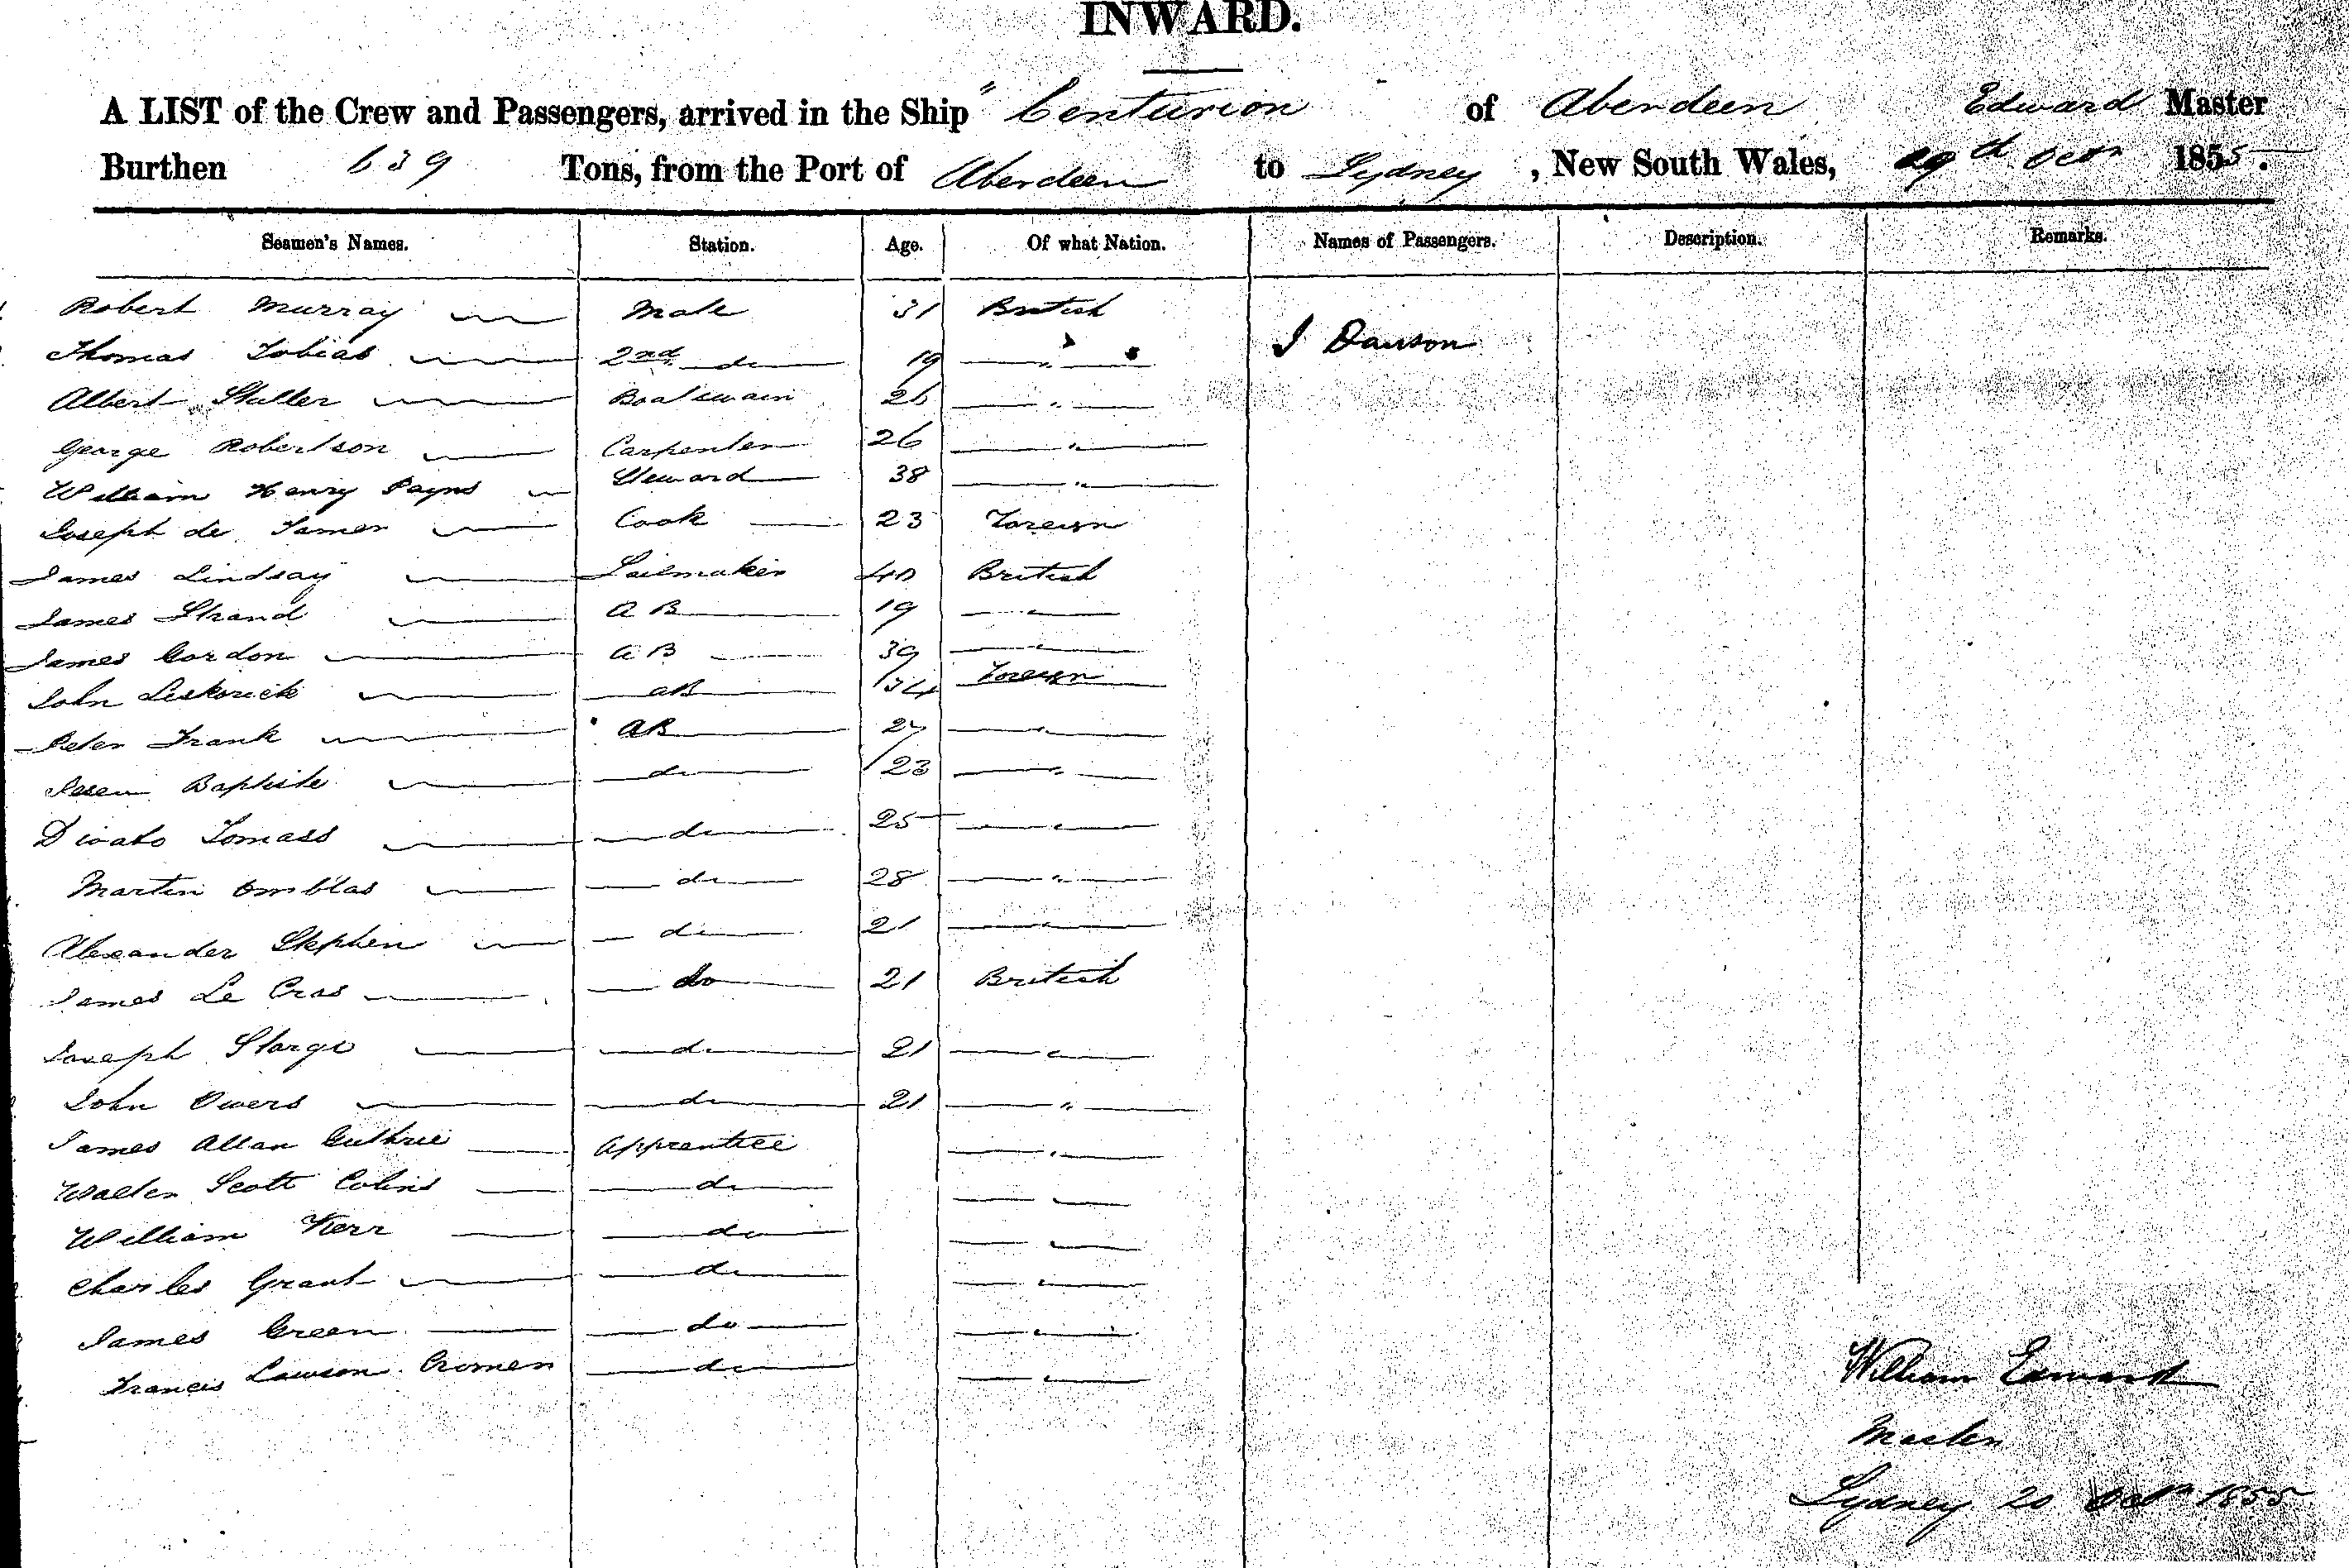 INWARD.
A LIST of the Crew and Passengers, arrived in the Ship "Centurion of Aberdeen Edward Master
Burthen 639 Tons, from the Port of Aberdeen to Sydney, New South Wales, Octr 1855.
Seamen's Names. Station. Age. Of what Nation. Names of Passengers. Description. Remarks.
Robert Murray Mate 31 British
Thomas Tobias 2nd do 19 " J Dawson
Albert Statler Boatswain 26 "
George Robertson Carpenter 26 "
William Henry Payns Steward 38 "
Joseph de Tamer Cook 23 Foreign
James Lindsay Sailmaker 40 British
James Strand AB 19 "
James Gordon AB 39 "
John AB 34 Foreign
Peter Frank AB 27 "
Baptiste do 23 "
Tomass do 25 "
Martin do 28 "
Alexander Stephen do 21 "
James Le Cras do 21 British
Joseph Storge do 21 "
John Owers do 21 "
James Allan Guthrie Apprentice "
Walter Scott Colins do "
William Kerr do "
Charles Grant do "
James Green do "
Francis Lawson Cromen do "
William Edward
Master
Sydney 20 Octr 1855